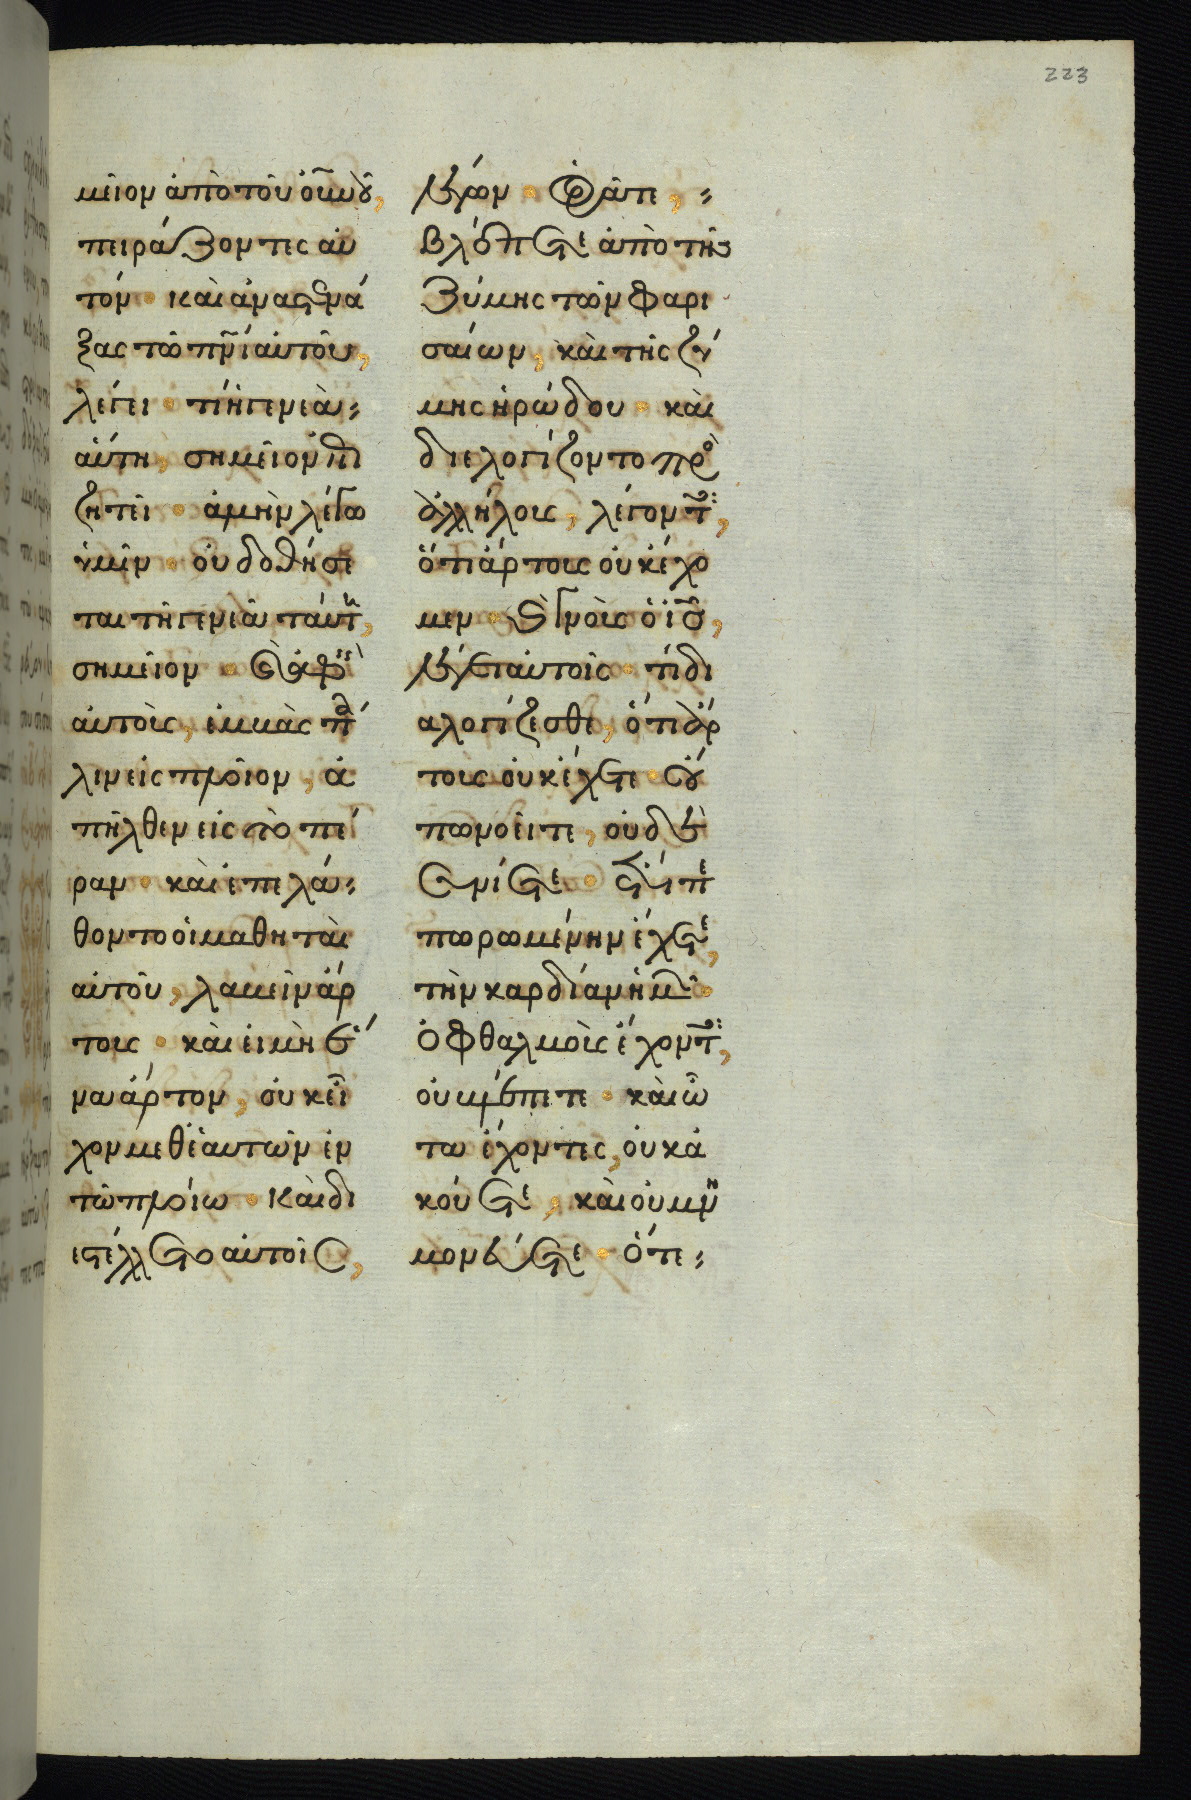 223
μεῖον ἀπὸ τοῦ οὐ̅νου̅,
πειράζοντες αὐ
τόν· καὶ ἀναστενά
ξας τῶ πν̅ι αὐτοῦ,
λέγει· τί ἡ γενεὰ
αὕτη, σημεῖον ἐπι
ζητεῖ· ἀμὴν λέγω
ὑμῖν· οὐ δοθήσε
ται τῆ γενεᾶ ταύτη,
σημεῖον· καὶ ἀφεὶς
αὐτοὺς, ἐμβὰς πά
λιν εἰς πλοῖον, ἀ
πῆλθεν εἰς τὸ πέ
ραν· καὶ ἐπελά
θοντο οἱ μαθηταὶ
αὐτοῦ, λαβεῖν ἄρ
τους· καὶ εἰ μὴ ἕ
να ἄρτον, οὐκ εἶ
χον μεθ' ἑαυτῶν ἐν
τῶ πλοίω· καὶ δι
εστέλλετο αὐτοῖς,
λέγων· ὁρᾶτε,
βλέπετε ἀπὸ τῆς
ζύμης τῶν φαρι
σαίων, καὶ τῆς ζύ
μης ἡρώδου· καὶ
διελογίζοντο πρὸς
ἀλλήλους, λέγοντες,
ὅτι ἄρτους οὐκ ἔχο
μεν· καὶ γνοὺς ὁ ι̅ς̅,
λέγει αὐτοῖς· τί δι
αλογίζεσθε, ὅτι ἄρ
τους οὐκ ἔχετε· οὔ
πω νοεῖτε, οὐδὲ
συνίετε· ἔτι πε
πωρωμένην ἔχετε,
τὴν καρδίαν ὑμῶν·
ὀφθαλμοὺς ἔχοντες,
οὐ βλέπετε· καὶ ὦ
τα ἔχοντες, οὐκ ἀ
κούετε, καὶ οὐ μνη
μονεύετε· ὅτε